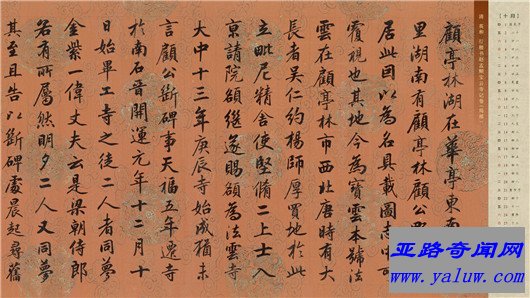 【十月】
顧亭林湖在華亭東南
里湖南有顧亭林顧公野
居此因以為名具載圖志中可
覆視也其地今為寶雲本號法
雲在顧亭林市西北唐時有大
長者吳仁約楊師厚買地於此
立毗尼精舍使堅脩二上士入
京請院額繼遂賜額為法雲寺
大中十三年庚辰寺始成猶未
言顧公斷碑事天福五年遷寺
於南石晉開運元年十二月十
日始畢工寺之徒二人者同夢
金紫一偉丈夫云是梁朝侍郎
若有所屬然明夕二人又同夢
其至且告以斷碑處晨起尋舊
亚路奇闻网
www.yaluw.com